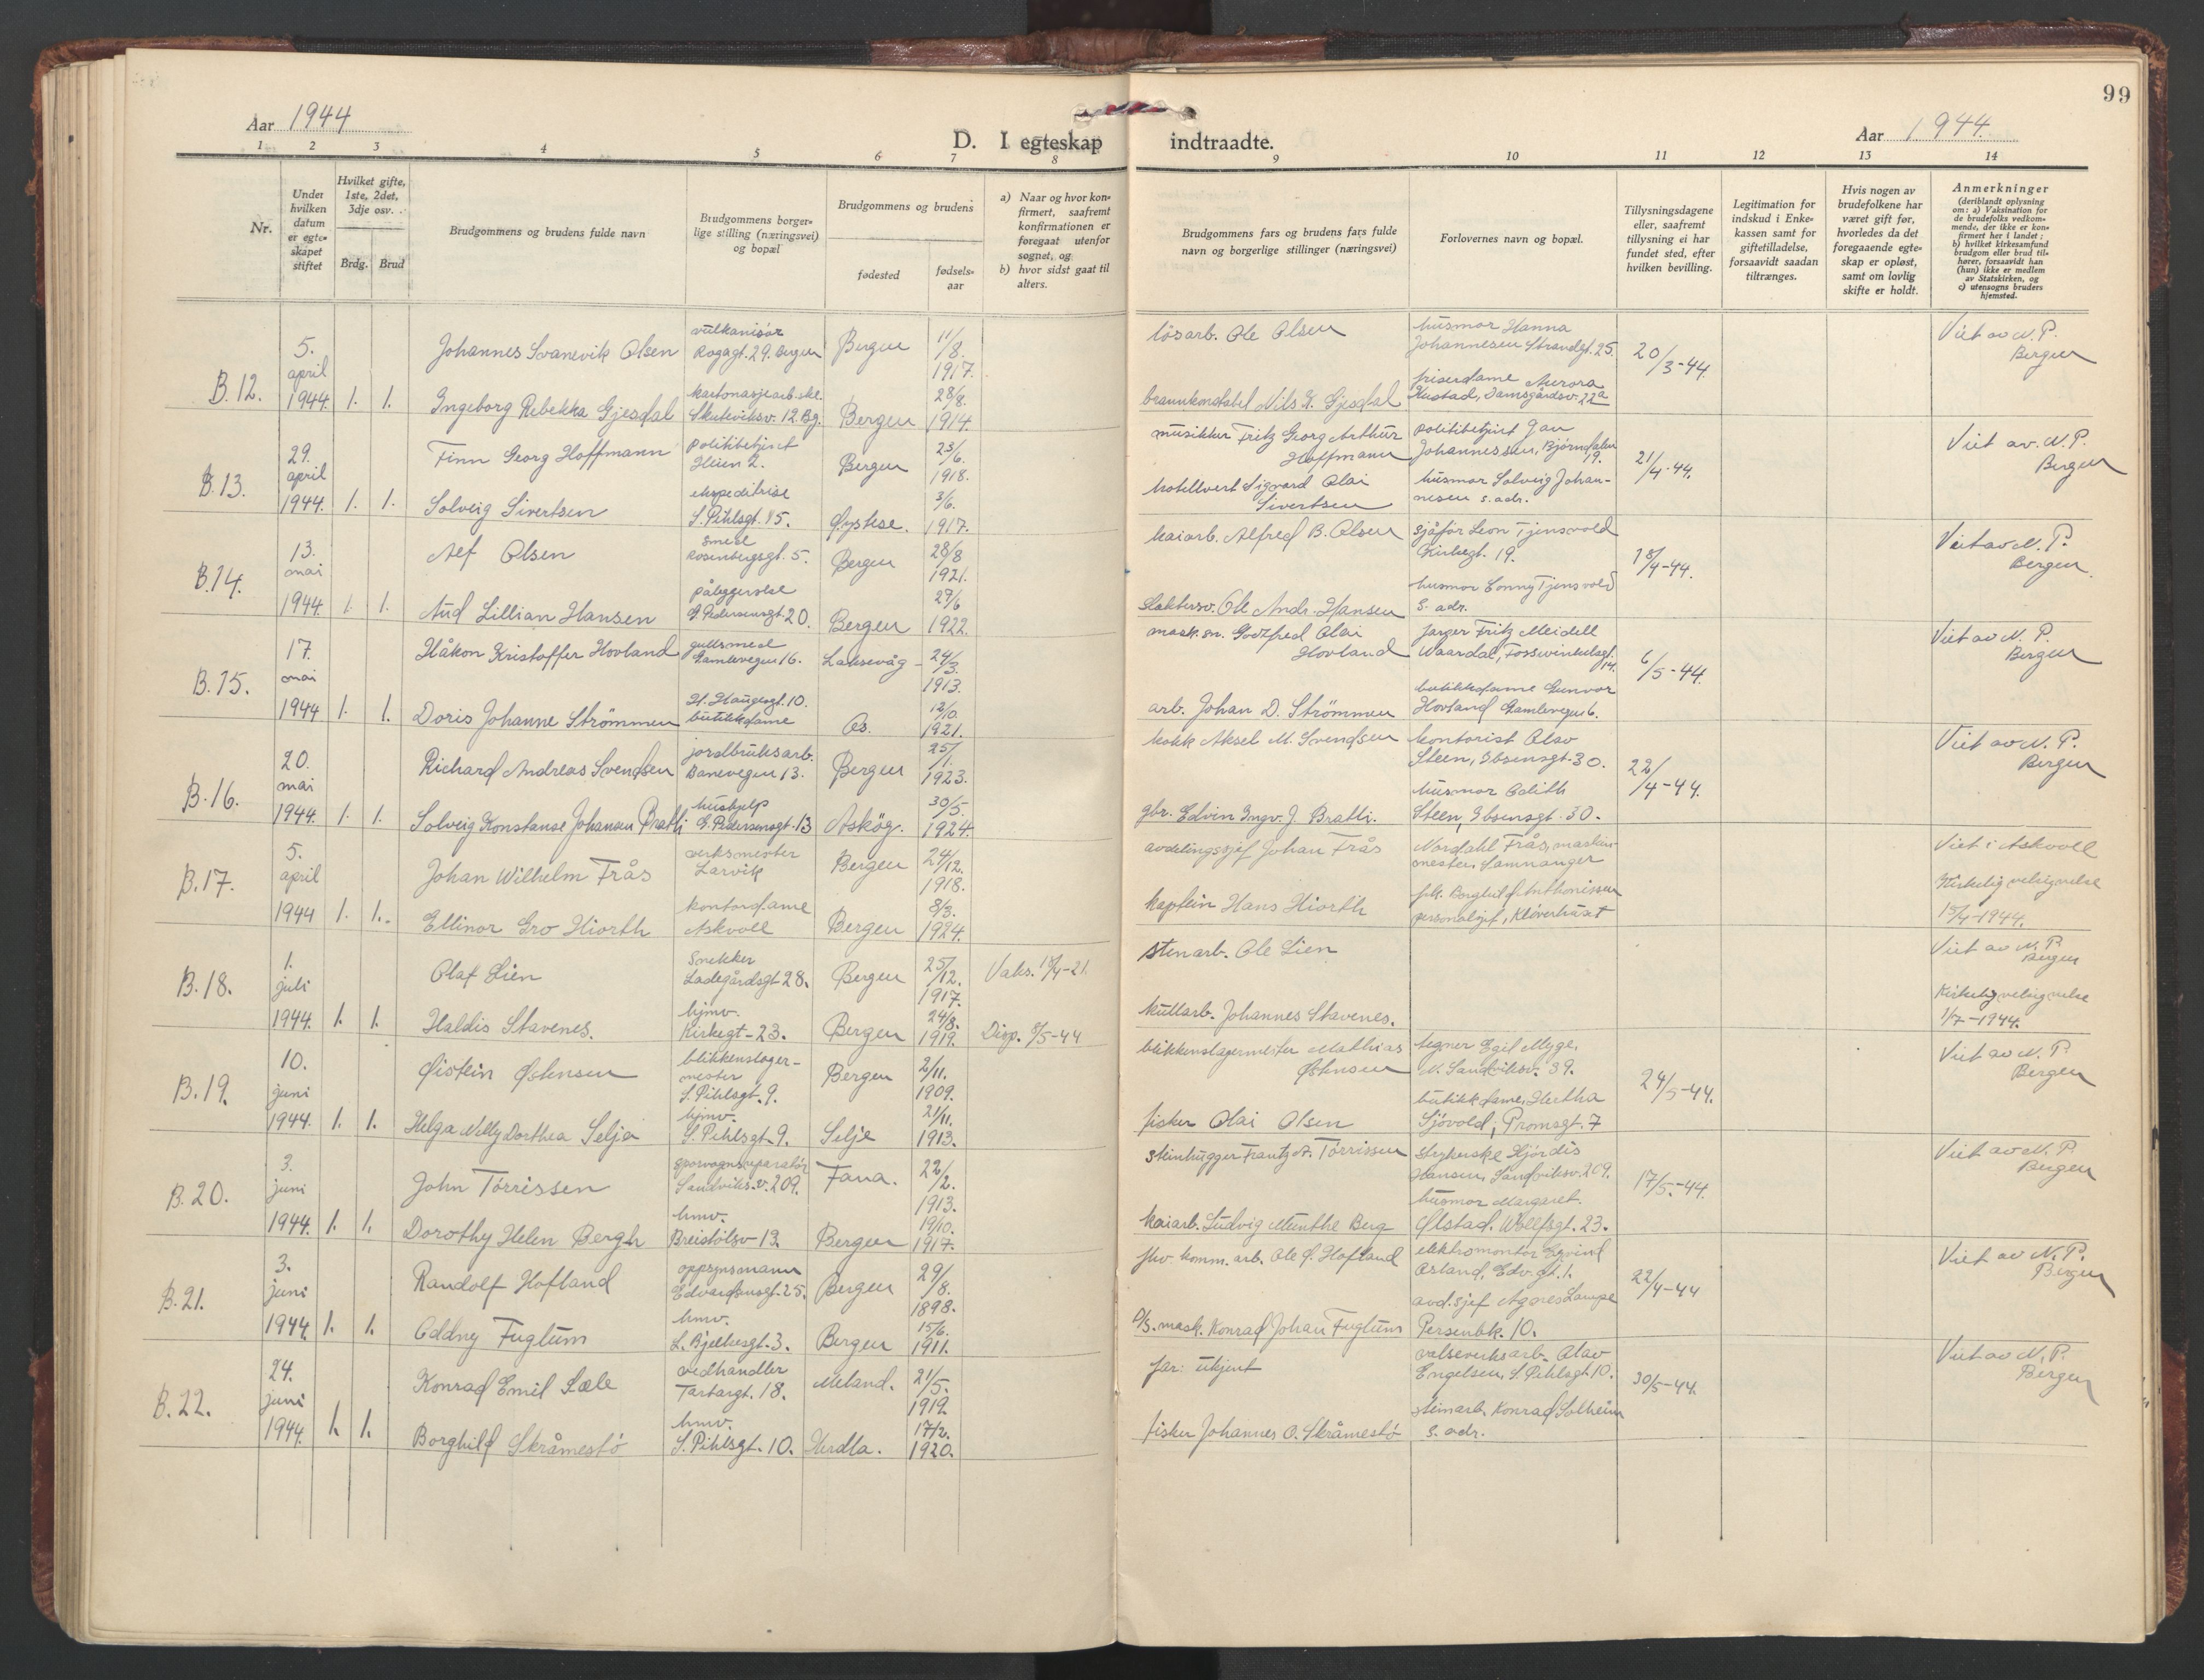 99
Aar 1944
D. I egteskap indtraadte.
Aar 1944.
1 2 3 4 5 6 7 8 9 10 11 12 13 14
Nr.
Under hvilken datum er egteskapet stiftet
Hvilket gifte, 1ste, 2det, 3dje osv.
Brdg. Brud
Brudgommens og brudens fulde navn
Brudgommens borgerlige stilling (næringsvei) og bopæl
Brudgommens og brudens
fødested
fødselsaar
a) Naar og hvor konfirmert, saafremt konfirmationen er foregaat utenfor sognet, og
b) hvor sidst gaat til alters.
Brudgommens fars og brudens fars fulde navn og borgerlige stillinger (næringsvei)
Forlovernes navn og bopæl.
Tillysningsdagene eller, saafremt tillysning ei har fundet sted, efter hvilken bevilling.
Legitimation for indskud i Enkekassen samt for giftetilladelse, forsaavidt saadan tiltrænges.
Hvis nogen av brudefolkene har været gift før, hvorledes da det foregaaende egteskap er opløst, samt om lovlig skifte er holdt.
Anmerkninger
(deriblandt oplysning om: a) Vaksination for de brudefolks vedkommende, der ikke er konfirmert her i landet; b) hvilket kirkesamfund brudgom eller brud tilhører, forsaavidt han (hun) ikke er medlem av Statskirken, og c) utensogns bruders hjemsted.
B.12. 5. april 1944. 1. 1.
Johannes Svanevik Olsen vulkanisør Rogagt. 29. Bergen Bergen 11/8. 1917. løsarb. Ole Olsen husmor Hanna Johannesen Strandgt. 25. 20/3-44. Viet av N. P. Bergen
Ingeborg Rebekka Gjesdal kartonasjearb.ske. Skuteviksv. 12. Bg. Bergen 28/8. 1914. brannkonstabel Nils K. Gjesdal friserdame Aurora Kustad, Damsgårdsv. 22a
B.13. 29. april 1944. 1. 1.
Finn Georg Hoffmann politibetjent Heien 2. Bergen 23/6. 1918. musikker Fritz Georg Arthur Hoffmann politibetjent Jan Johannessen, Bjørndalen 19. 21/4-44. Viet av. N. P. Bergen
Solveig Sivertsen ekspeditrise S. Pihlsgt. 15. Øystese. 3/6. 1917. hotellvert Sigvard Olai Sivertsen husmor Solveig Johannesen s. adr.
B.14. 13. mai 1944. 1. 1.
Alf Olsen smed Rosenbergsgt. 5. Bergen 28/8 1921. kaiarb. Alfred B. Olsen sjåfør Leon Tjensvold Kirkegt. 19. 18/4-44. Viet av N. P. Bergen.
Aud Lillian Hansen påleggerske G. Pedersensgt. 20. Bergen 29/6 1922. slaktersv. Ole Andr. Hansen husmor Conny Tjensvold s. adr.
B.15. 17. mai 1944 1. 1.
Håkon Kristoffer Hovland gullsmed Gamlevegen 16. Laksevåg 24/3. 1913. mask.sn. Godtfred Olai Hovland Jarger Fritz Meidell Waardal, Fosswinkelsgt. 14. 6/5-44. Viet av N. P. Bergen
Doris Johanne Strømmen H. Haugesgt. 10. butikkdame Os. 12/10. 1921. arb. Johan D. Strømmen butikkdame Gunvor Hovland Gamlevegen 6.
B.16. 20. mai 1944. 1. 1.
Richard Andreas Svendsen jordbruksarb. Banevegen 13. Bergen 25/1. 1923. kokk Aksel M. Svendsen kontorist Olav Steen, Ibsensgt. 30. 22/4-44. Viet av N. P. Bergen
Solveig Konstanse Johansen Bratli hushjelp G. Pedersensgt. 13 Askøy. 30/5. 1924. gbr. Edvin Ingv. J. Bratli. husmor Edith Steen, Ibsensgt. 30.
B.17. 5. april 1944 1. 1.
Johan Wilhelm Frås verksmester Larvik Bergen 24/12. 1918. avdelingssjef Johan Frås Nordahl Frås, maskinmester, Samnanger Viet i Askvoll
Ellinor Gro Hiorth kontordame Askvoll Bergen 8/3. 1924. kaptein Hans Hiorth frk. Borghild Anthonissen personalsjef, Kløverhuset Kirkelig velsignelse 15/4-1944.
B.18. 1. juli 1944. 1. 1.
Olaf Lien Snekker Ladegårdsgt. 28. Bergen 25/12. 1917. Vaks. 18/4-21. stenarb. Ole Lien Viet av N. P. Bergen
Haldis Stavenes. hjmv. Kirkegt. 23. Bergen 24/8. 1919. Disp. 8/5-44 kullarb. Johannes Stavenes. Kirkelig velsignelse 1/7-1944.
B.19. 10. juni 1944. 1. 1.
Øistein Østensen blikkenslagermester S. Pihlsgt. 9. Bergen 2/11. 1909. blikkenslagermester Mathias Østensen tegner Egil Myge, N. Sandviksv. 39. 24/5-44. Viet av N. P. Bergen
Helga Nelly Dorthea Selje hjmv. S. Pihlsgt. 9. Selje 21/11. 1913. fisker Olai Olsen butikkdame, Hertha Sjøvold, Promsgt. 7
B.20. 3. juni 1944. 1. 1.
John Tørrissen sporvognsreparatør Sandviks.v. 209. Fana. 22/2. 1913. steinhugger Frantz A. Tørrissen strykerske Hjørdis Hansen, Sandviksv. 209. 17/5-44. Viet av N. P. Bergen
Dorothy Helen Bergh hmv. Breistølsv 13. Bergen 19/10. 1917. kaiarb. Ludvig Munthe Berg husmor Margaret Ølstad. Wolffsgt. 23.
B.21. 3. juni 1944. 1. 1.
Randolf Hofland oppsynsmann Edvardsensgt. 25. Bergen 29/8. 1898. fhv. komm. arb. Ole J. Hofland elektromontør Eyvind Osland, Edv.gt. 1. 22/4-44 Viet av N. P. Bergen
Oddny Fuglum hmv. L. Bjelkesgt. 3. Bergen 15/6. 1911. D/S. mask. Konrad Johan Fuglum avd.sjef Agnes Lampe Persenbk. 10.
B.22. 24. juni 1944. 1. 1.
Konrad Emil Sæle vedhandler Tartargt. 18. Meland. 21/5. 1919. far: ukjent valseverksarb. Olav Engelsen, S. Pihlsgt. 10. 30/5-44. Viet av N. P. Bergen
Borghild Skråmestø hmv. S. Pihlsgt. 10. Herdla. 17/2. 1920. fisker Johannes O. Skråmestø steinarb. Konrad Solheim s. adr.